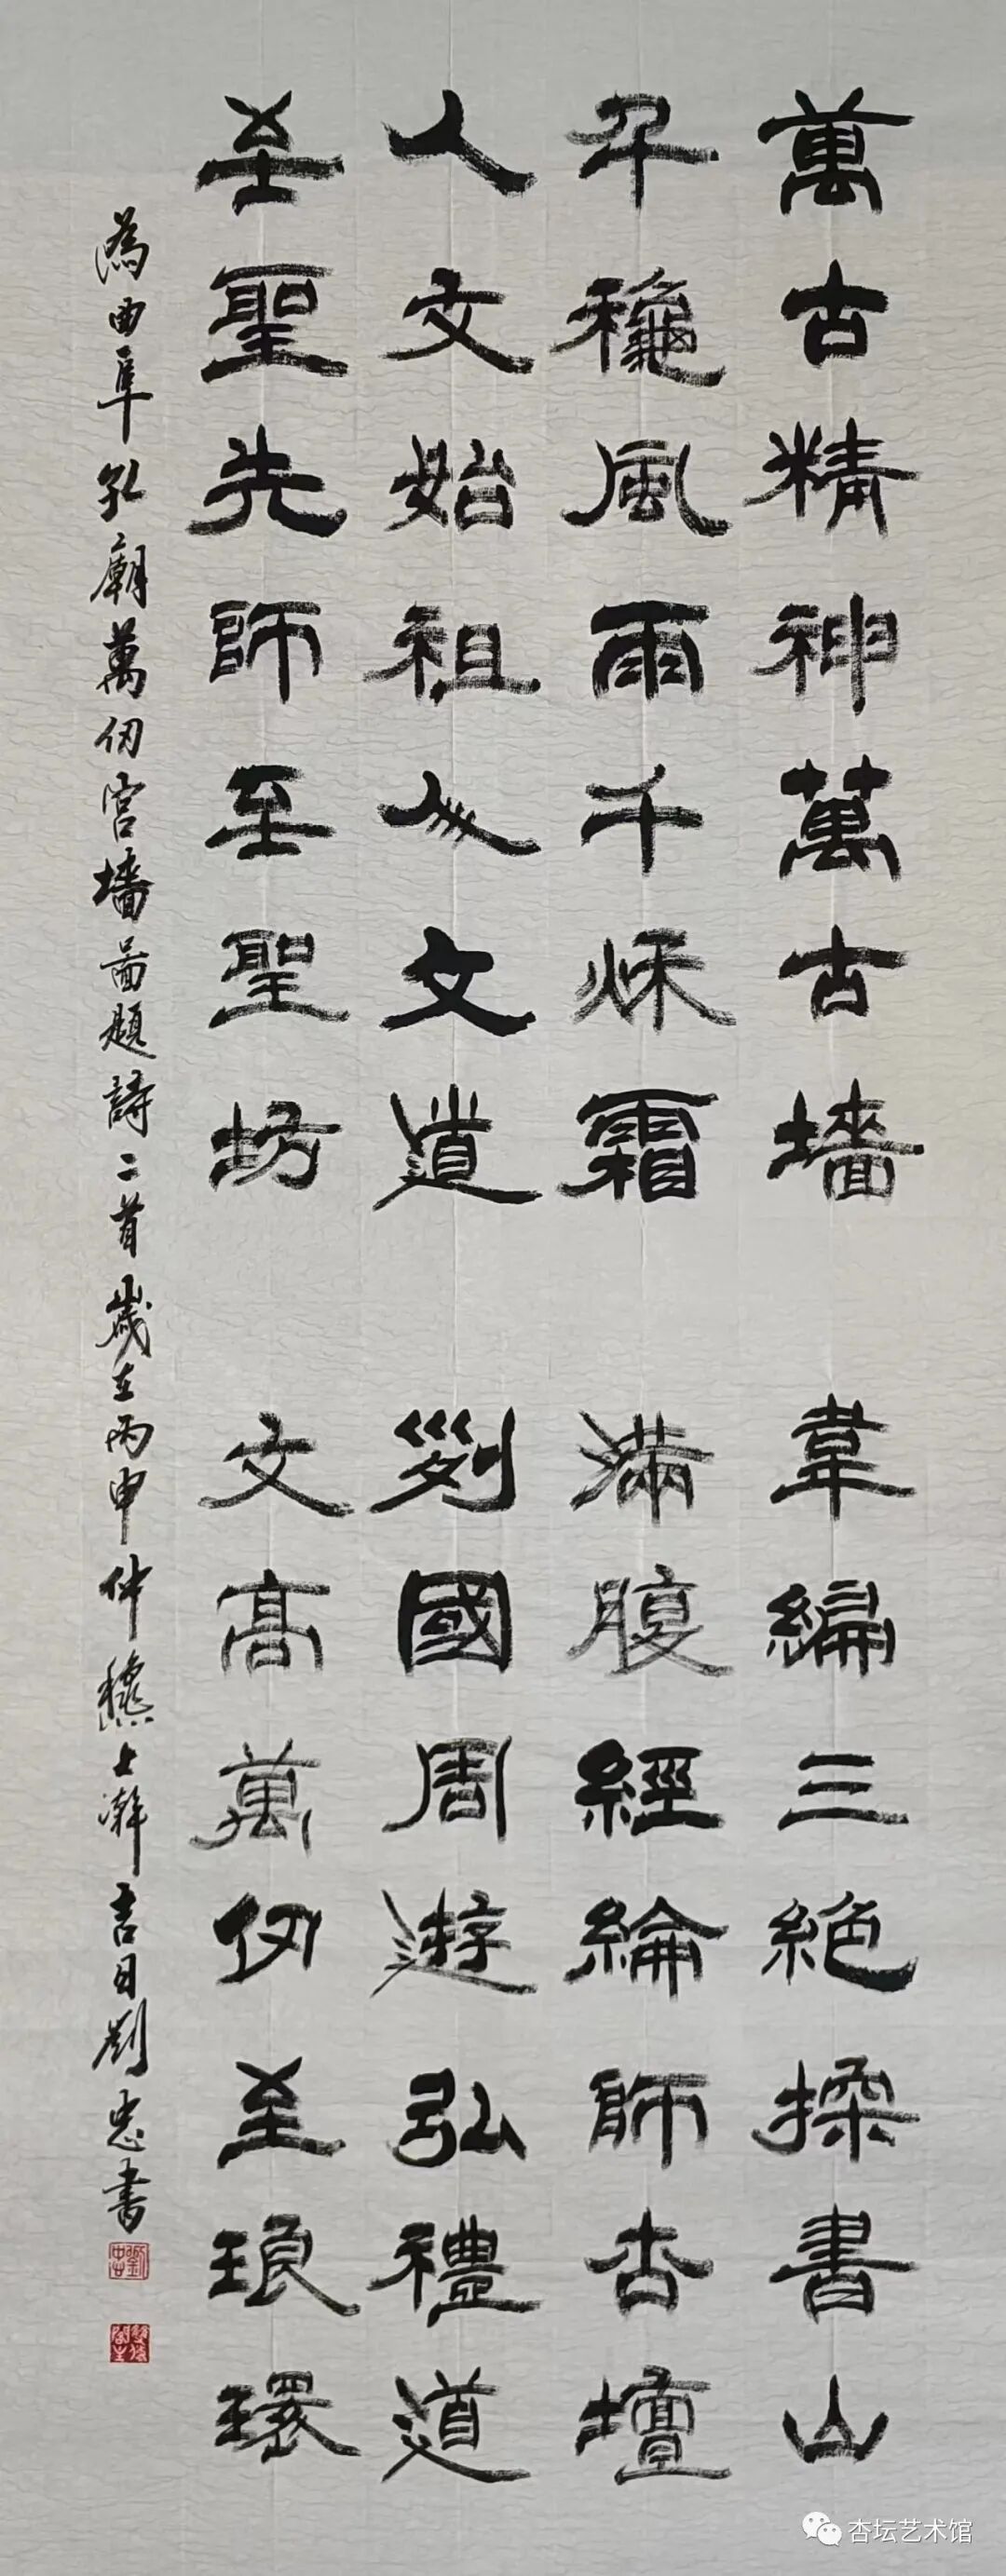 萬古精神萬古墻
千龝風雨千秌霜
人文始祖人文道
至聖先師至聖坊
韋編三絕探書山
滿腹經綸師杏壇
列國周遊弘禮道
文高萬仞至琅環
為曲阜孔廟萬仞宮墻啚題詩二首歲在丙申仲龝上澣吉日劉忠書
劉忠
杏坛艺术馆